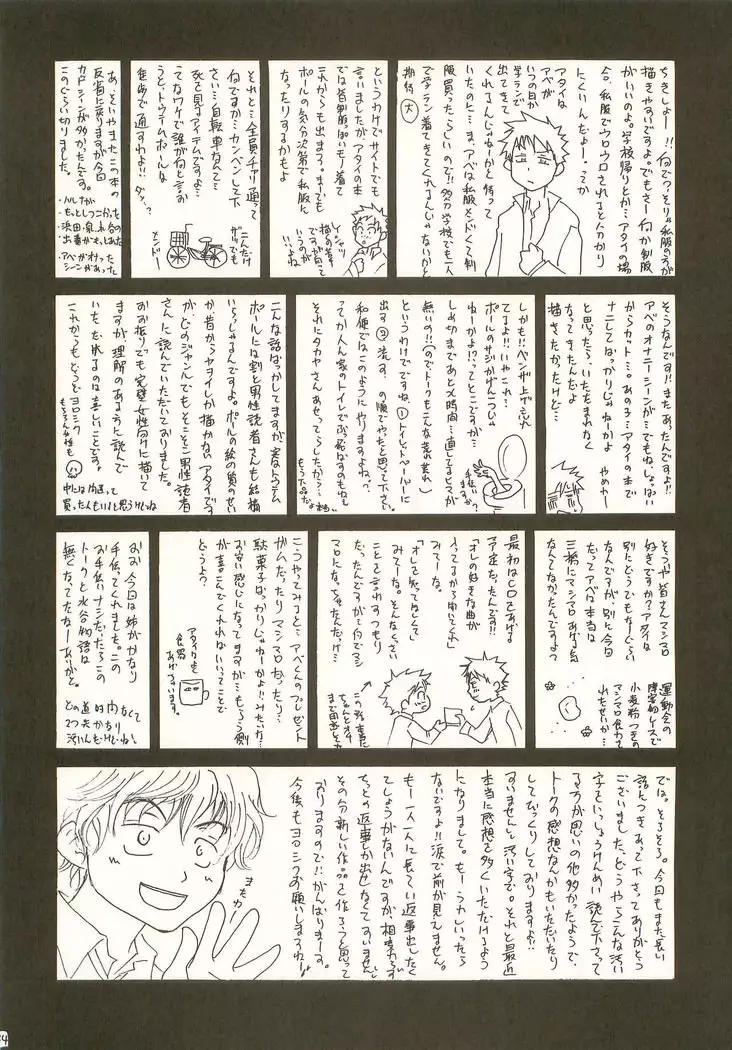 ちきしょー!!何で?そりゃ私服の方が
描きやすいですよ。でもさー何か制服
がいいのよ。学校帰りとか…アタイの場
合。私服でウロウロされると人分かり
にくいんだよー。ってか
アタイは
アベが
いつの日か
学ランで
出てきて
くれるんじゃねーかと待って
いたのに…ま、アベは私服メンドくて制
服買ったらしいので!!多分学校でも一人
で学ラン着てきてくれるんじゃないかと
期待 大
というわけでサイトでも
言いましたがアタイの本
では皆制服っぽいモノ着て
これからも出まする。までも
ポールの気分次第で私服に
なったりするかもよ
それと…全員チャリ通って
何ですか…カンベンして下
さい…自転車なんて…
死を見るアイテムですよ…
てなワケで誰が何と言お
うと、トウテムポールは
徒歩で通すわよ!!
これだけ
ザツでも
メンドー
あ、そいやまたこの本の
反省に戻りますが今回
カットシーンが多かったんです。
このぐらい切りました。
・ハルナが
もっとしつこかった
・浜田・泉・水谷の
出番がもっとあった
・アベがオナった
シーンがあった
そうなんです!!またあったんですよ!!
アベのオナニーシーンが…でもねしょっぱな
からカット…。あの子…アタイの本で
ナニしてばっかりじゃねーかよ
と思ったら、いたたまれなく
なってきたんだよ
描きたかったけど…
やめれー
しかも!!ペン入れ上げてん
てるよ!!いやこれ…
ポールのサジかげんっつじゃ
ねーかよ!?ってとこですが
しめ切りまであと〆時間…直してるヒマが
無いの!!(のでトークもこんな荒れ荒れ)
というわけでですね、①トイレットペーパーに
出す②流す、の順でやったと思って下さい。
和便ではこのようにやりますよねっ?
ってか人ん家のトイレでぶっ放すのもねし
それにタカヤさんあせってらしたから…
もう下品だよ本当
こんな話ばっかしてますが、実はトウテム
ポールには割と男性読者さんも結構
いらっしゃるんですよ。ポールの絵の質のせい
か昔からヤヨイしか描かないアタイです
が、どのジャンルでもそこそこ男性読者
さんに読んでいただいておりました。
おお振りでも完璧女性向けに描いて
ますが理解のある方に読んで
いただけるのは喜しいことです。
これからもどうぞヨロシク
もちろん女性も
中には間違って
買ったんもいると思うけどね
そういや皆さんマシマロ
好きですか?アタイは
別にどうでもなーぐらい
なんですが、別に今日
だってアベは本当は
三橋にマシマロあげる気
なんてなかったんですよっ
運動会の
障害物レースで
小麦粉つきの
マシマロ食わさ
れたせいか…
最初はCDをあげる
予定だったんです!!
「オレの好きな曲が
入ってっから聞いてくれ」
みてーな。
「オレを知ってほしくて」
みてーな。そんなくさい
ことを言わすつもり
だったんですが…何でマシ
マロになっちゃったんだっけ…
こうやってみると…アベくんのプレゼント
がガムだったりマシマロだったり…
駄菓子ばっかりじゃねーかよ!!みたいな…
お安い感じになってますが…もらう側
が喜こんでくれればいいってことで
どうよっ?
アタイなんぞ
食器
あげています。
おお、今回は姉がかなり
手伝ってくれました。この
お手伝いナシだったらこの
トークと水谷物語は
無くなってたなーありがと。
どの道時間なくて
2つ共かなり
汚いんだけどね。
では。そろそろ。今回もまた長い
話につきあって下さってありがとう
ございました、どうやらこんな汚い
字でいっしょうけんめい読んで下さって
る方が思いの他多かったようで、
トークの感想なんかもいただいたり
してびっくりしておりますよ!!
すいませんと汚い字で。それと最近
本当に感想を多くいただけるよう
になりまして。もーうれしいったら
ないですよ!!涙で前が見えません。
もー一人一人に長ーい返事出したく
てしょうがないんですが、相変わらず
ちょっとの返事しか出せなくてすいません
その分新しい作品を作ろうと思って
おりますので!!がんばりまーす。
今後もヨロシクお願いしますねー!
またねー